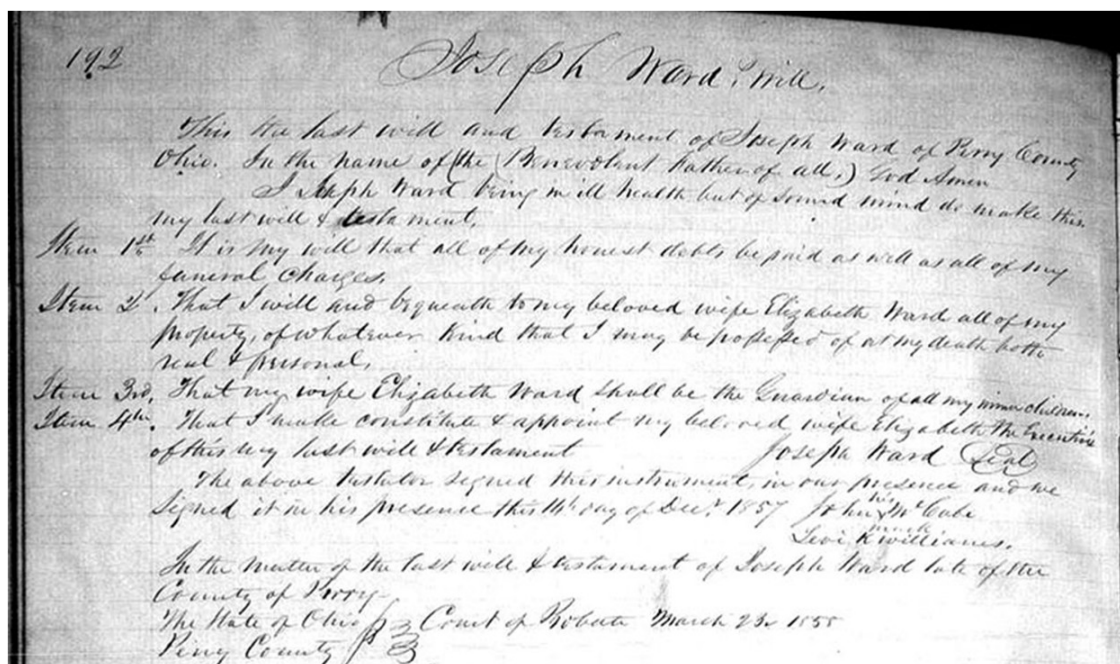 192
Joseph Ward's Will.
This the last will and testament of Joseph Ward of Perry County
Ohio. In the name of (the (Benevolent Father of all,) God Amen
I Joseph Ward being in ill health but of sound mind do make this
my last will & testament.
Item 1st It is my will that all of my honest debts be paid as well as all of my
funeral charges.
Item 2. That I will and bequeath to my beloved wife Elizabeth Ward all of my
property, of whatever kind that I may be possessed of at my death both
real & personal.
Item 3rd. That my wife Elizabeth Ward shall be the Guardian of all my minor children.
Item 4th. That I make constitute & appoint my beloved wife Elizabeth the
of this my last will & testament Joseph Ward Seal
The above testator signed this instrument, in our presence and we
signed it in his presence this day of Decr 1857 John his McCabe
mark
Levi K Williams.
In the matter of the last will & testament of Joseph Ward late of the
County of Perry
The State of Ohio Court of Probate March 23 1858
Perry County